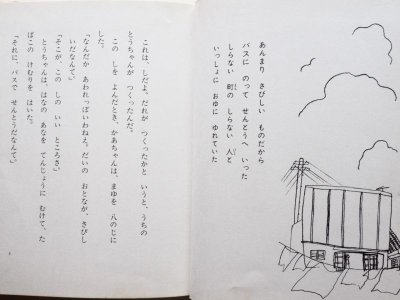 あんまり さびしい ものだから
バスに のって せんとうへ いった
しらない 町の しらない 人と
いっしょに おゆに ゆれていた
これは、しだよ。だれが つくったかと いうと、うちの
とうちゃんが つくったんだ。
この しを よんだとき、かあちゃんは、まゆを 八のじに
した。
「なんだか あわれっぽいわねえ。だいの おとなが、さびし
いだなんて」
「そこが、この しの いい ところさ」
とうちゃんは、はなの あなを てんじょうに むけて、た
ばこの けむりを はいた。
「それに、バスで せんとうだなんて」